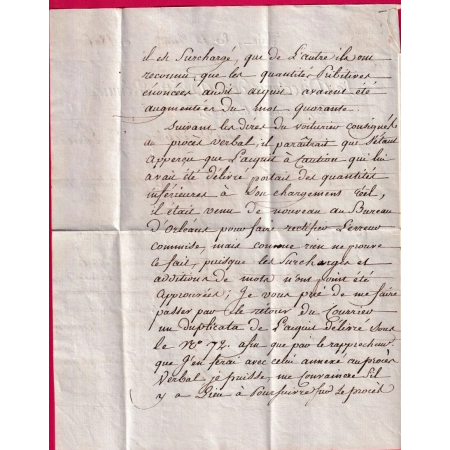 il est Surchargé, que de L'autre ils ont
reconnu que les quantités
énoncées audit acquit avaient été
augmentées du mot quarante.
Suivant les dires du voiturier consignés
au procès verbal, il paraîtrait que S'étant
apperçu que L'acquit à Caution qui lui
avait été délivré portait des quantités
inférieures à Son chargement réel,
il était venu de nouveau au Bureau
d'Orléans pour faire rectifier L'erreur
commise, mais comme rien ne prouve
le fait, puisque les Surcharges et
additions de mots n'ont point été
approuvées; Je vous prie de me faire
passer par le retour du Courrier
un duplicata de L'acquit délivré Sous
le N° 72. afin que par le rapprochemt
que J'en ferai avec celui annexé au procès
Verbal je puisse me Convaincre S'il
y a Lieu à Poursuivre Sur Le procès